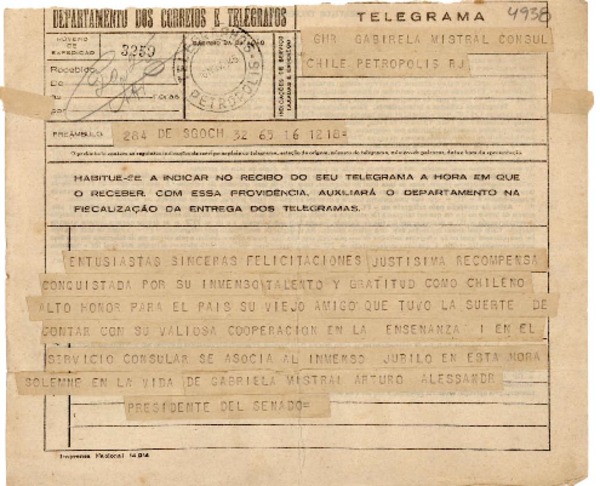 DEPARTAMENTO DOS CORREIOS E TELÉGRAFOS
TELEGRAMA
4938
NÚMERO DE EXPEDIÇÃO
3259
CARIMBO DA ESTAÇÃO
PETROPOLIS
INDICAÇÕES DE SERVIÇO TAXADAS E ENDERÊÇO
GHR GABIRELA MISTRAL CONSUL
CHILE PETROPOLIS RJ
Recebido
De
às horas
PREÂMBULO
284 DE SGOCH 32 65 16 1218=
HABITUE-SE A INDICAR NO RECIBO DO SEU TELEGRAMA A HORA EM QUE
O RECEBER. COM ESSA PROVIDÊNCIA, AUXILIARÁ O DEPARTAMENTO NA
FISCALIZAÇÃO DA ENTREGA DOS TELEGRAMAS.
ENTUSIASTAS SINCERAS FELICITACIONES JUSTISIMA RECOMPENSA
CONQUISTADA POR SU INMENSO TALENTO Y GRATITUD COMO CHILENO
ALTO HONOR PARA EL PAIS SU VIEJO AMIGO QUE TUVO LA SUERTE DE
CONTAR CON SU VALIOSA COOPERACION EN LA ENSENANZA I EN EL
SERVICIO CONSULAR SE ASOCIA AL INMENSO JUBILO EN ESTA HORA
SOLEMNE EN LA VIDA DE GABRIELA MISTRAL ARTURO ALESSANDR
PRESIDENTE DEL SENADO=
Imprensa Nacional